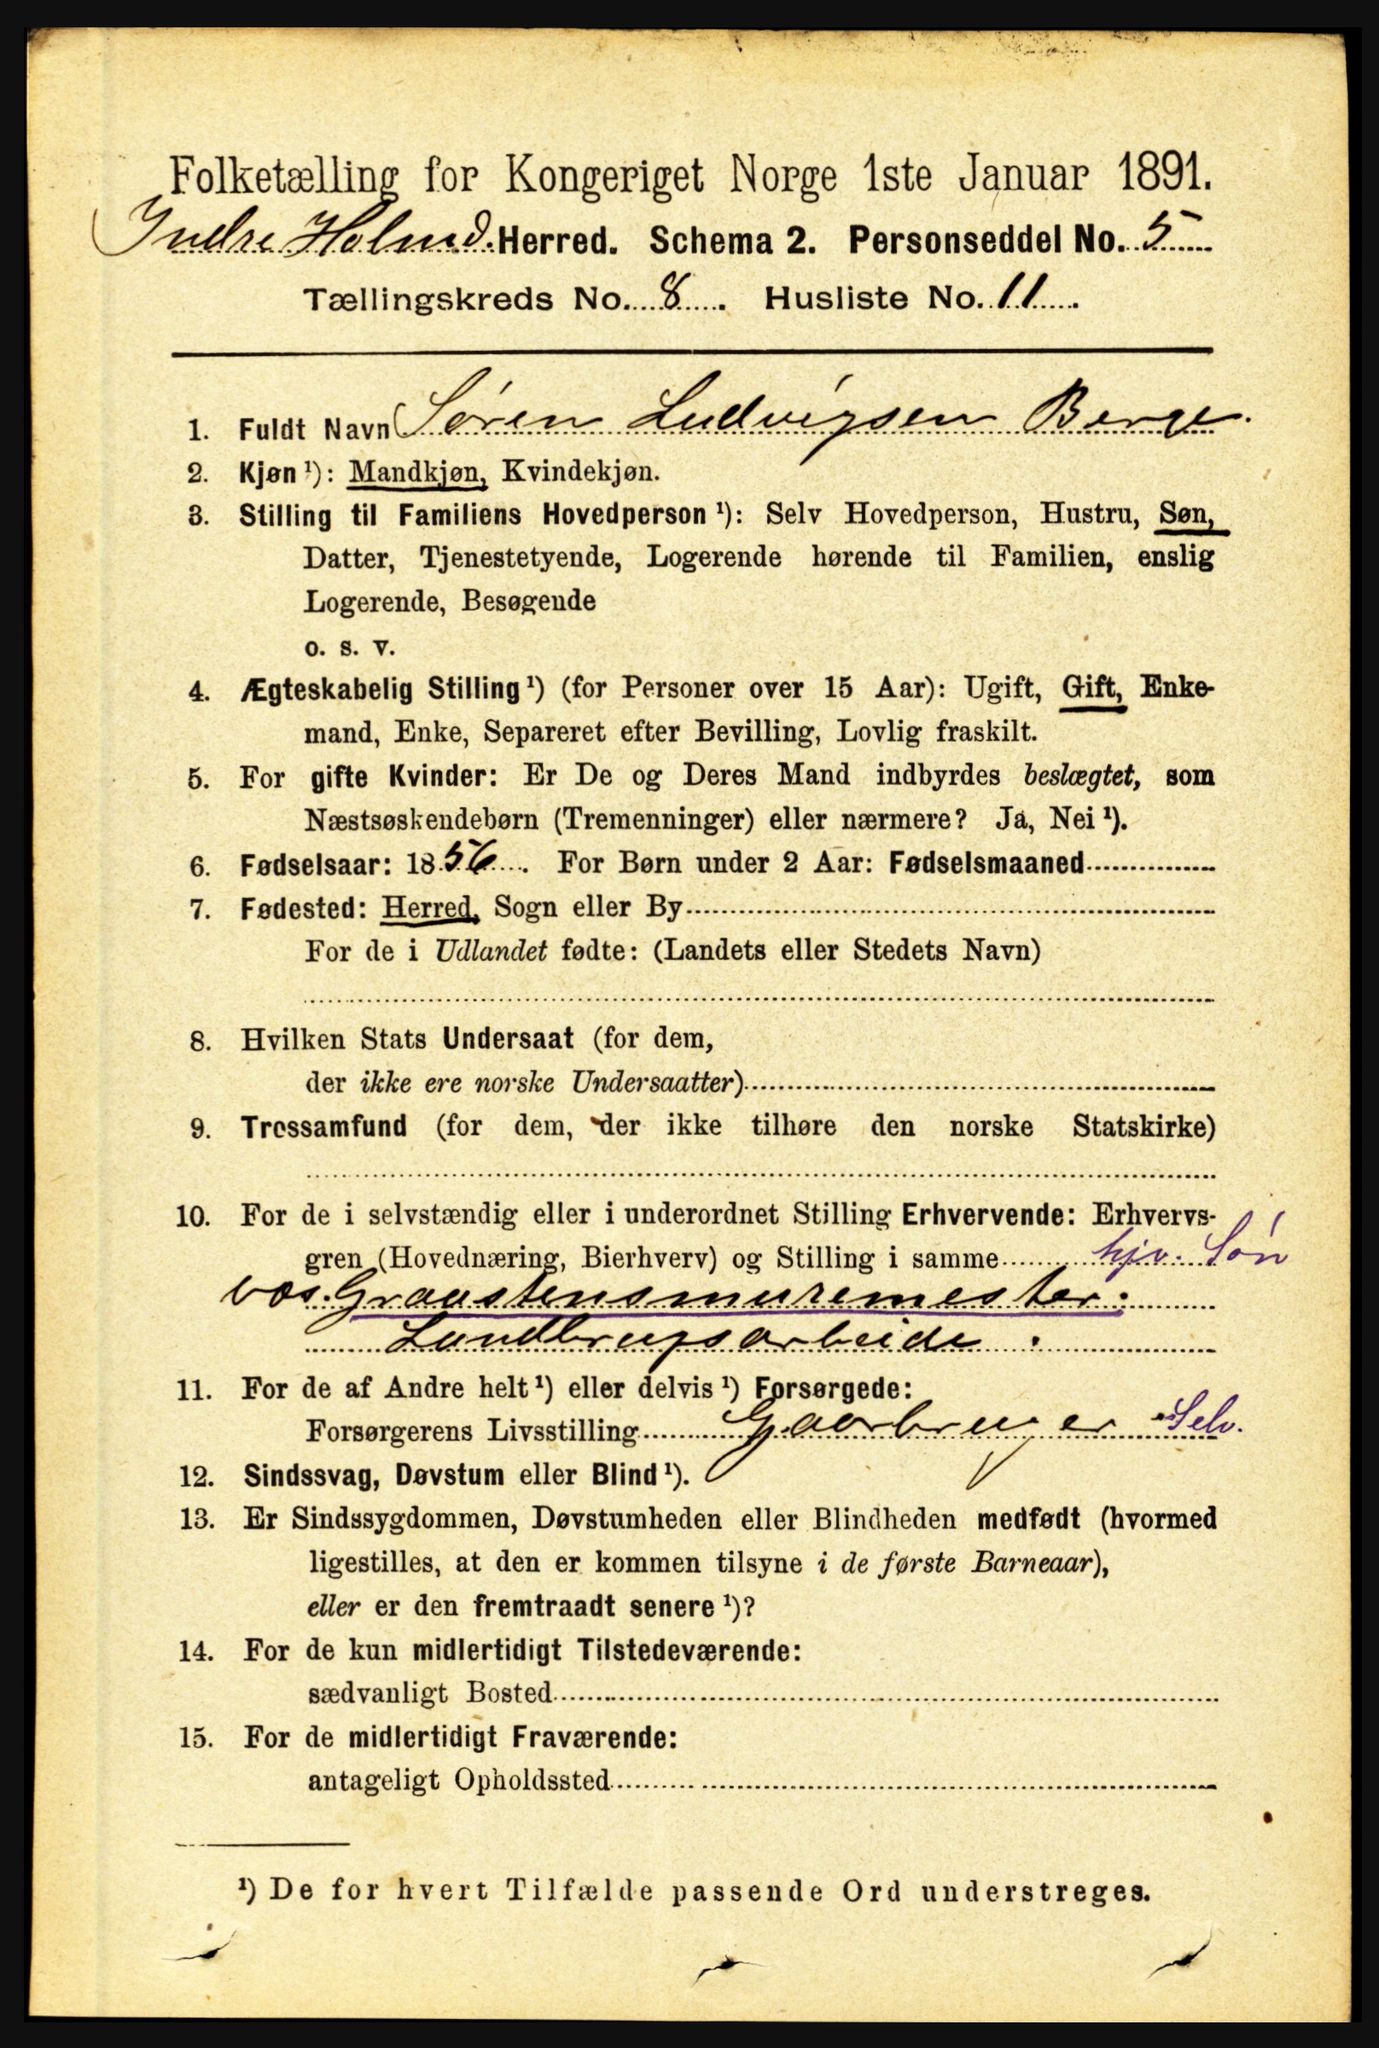 Folketælling for Kongeriget Norge 1ste Januar 1891.
Indre Holmed. Herred. Schema 2. Personseddel No. 5
Tællingskreds No. 8. Husliste No. 11.
1. Fuldt Navn Søren Ludvigsen Berge.
2. Kjøn¹): Mandkjøn, Kvindekjøn.
3. Stilling til Familiens Hovedperson¹): Selv Hovedperson, Hustru, Søn,
Datter, Tjenestetyende, Logerende hørende til Familien, enslig
Logerende, Besøgende
o. s. v.
4. Ægteskabelig Stilling¹) (for Personer over 15 Aar): Ugift, Gift, Enke-
mand, Enke, Separeret efter Bevilling, Lovlig fraskilt.
5. For gifte Kvinder: Er De og Deres Mand indbyrdes beslægtet, som
Næstsøskendebørn (Tremenninger) eller nærmere? Ja, Nei¹).
6. Fødselsaar: 1856. For Børn under 2 Aar: Fødselsmaaned
7. Fødested: Herred, Sogn eller By
For de i Udlandet fødte: (Landets eller Stedets Navn)
8. Hvilken Stats Undersaat (for dem,
der ikke ere norske Undersaatter)
9. Trossamfund (for dem, der ikke tilhøre den norske Statskirke)
10. For de i selvstændig eller i underordnet Stilling Erhvervende: Erhvervs-
gren (Hovednæring, Bierhverv) og Stilling i samme hjv. Søn
Graastensmuremester.
Landbrugsarbeide.
11. For de af Andre helt¹) eller delvis¹) Forsørgede:
Forsørgerens Livsstilling Gaarbruger Selv.
12. Sindssvag, Døvstum eller Blind¹).
13. Er Sindssygdommen, Døvstumheden eller Blindheden medfødt (hvormed
ligestilles, at den er kommen tilsyne i de første Barneaar),
eller er den fremtraadt senere¹)?
14. For de kun midlertidigt Tilstedeværende:
sædvanligt Bosted
15. For de midlertidigt Fraværende:
antageligt Opholdssted
¹) De for hvert Tilfælde passende Ord understreges.